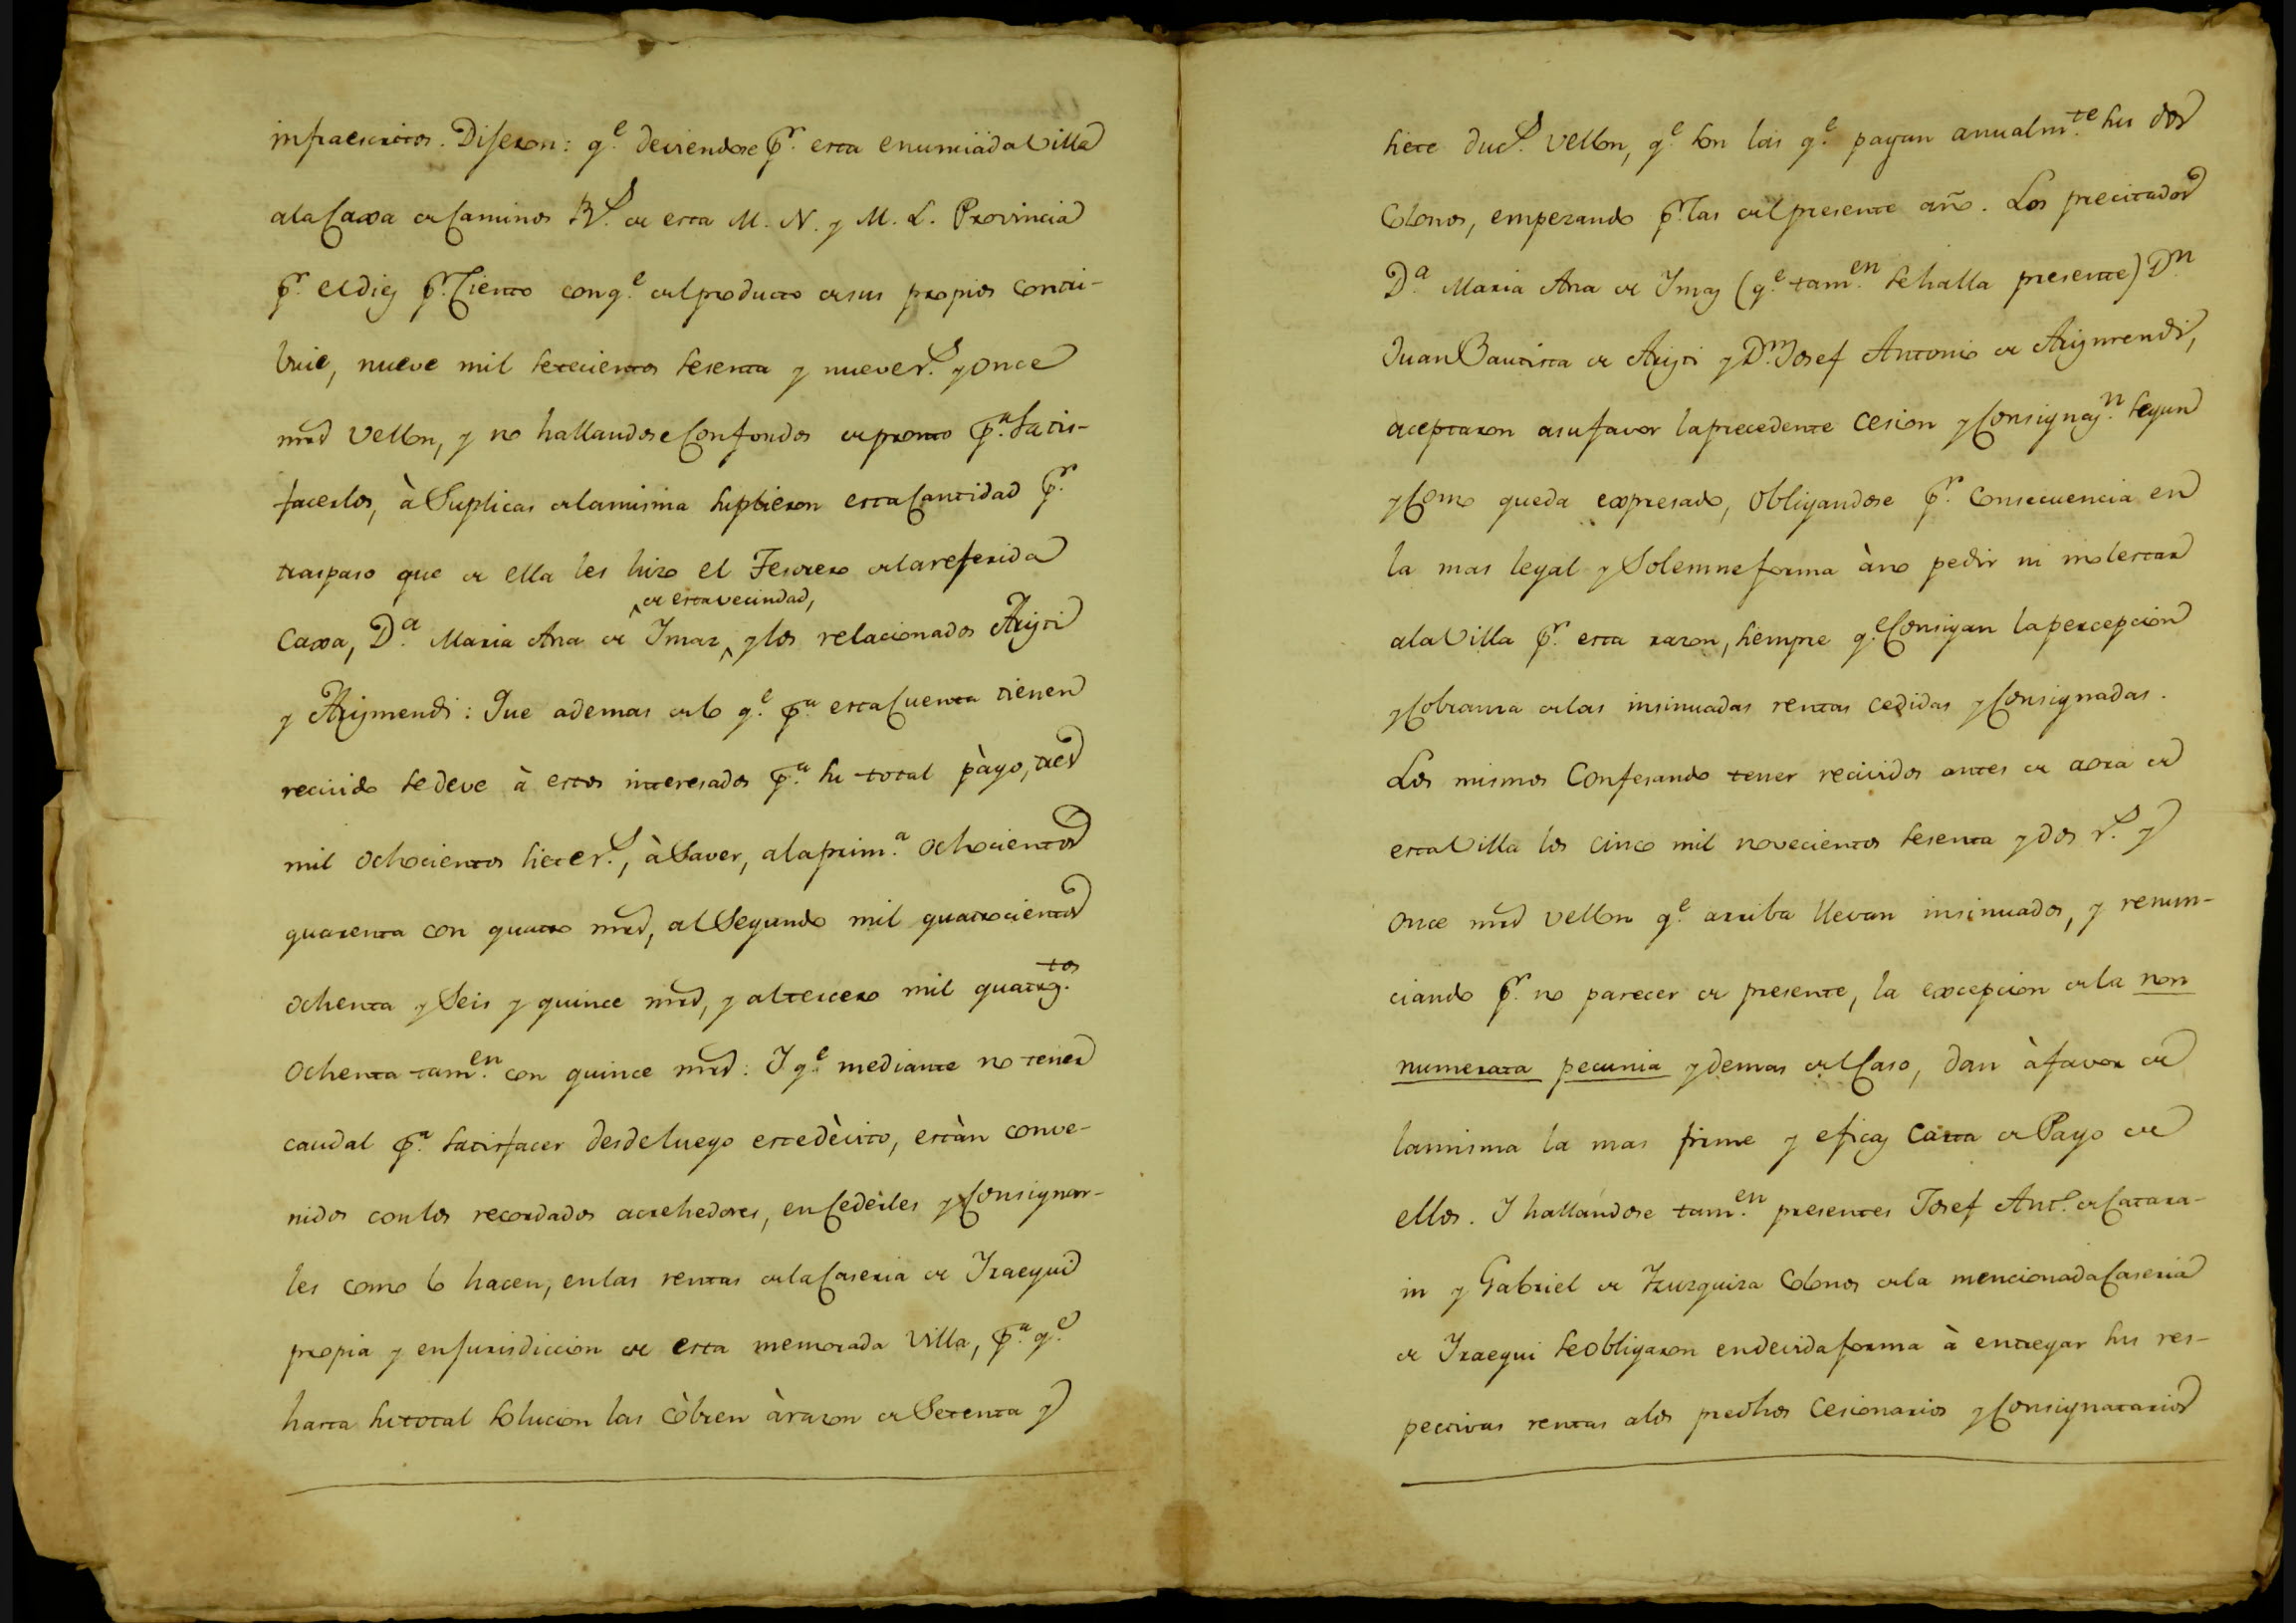 infraescritos. Dijeron: q.e deviendose p.r esta enunciada Villa
ala Caxa de Caminos R.s de esta M. N. y M. L. Provincia
p.r el diez p.r Ciento con q.e del producto de sus propios contri-
buie, nueve mil setecientos sesenta y nueve r.s y once
mrs vellon, y no hallandose Con fondos de pronto p.a Satis-
facerlos, à Suplicas de la misma suplieron esta Cantidad p.r
traspaso que de ella les hizo el Tesorero de la referida
^de esta vecindad,
Caxa, D.a Maria Ana de Imaz,^ y los relacionados Arizti
y Arizmendi: Que ademas de lo q.e p.a esta Cuenta tienen
recivido se deve à estos interesados p.a su total pàgo, tres
mil ochocientos siete r.s, à Saver, ala prim.a ochocientos
quarenta con quatro mrs, al Segundo mil quatrocientos
ochenta y Seis y quince mrs, y al tercero mil quatroz.tos
ochenta tam.en con quince mrs: I q.e mediante no tener
caudal p.a satisfacer desde luego este dèvito, estàn conve-
nidos con los recordados acrehedores, en Cederles y Consignar-
les como lo hacen, en las rentas de la Caseria de Iraegui
propia y en jurisdiccion de esta memorada Villa, p.a q.e
hasta su total solucion las còbren à razon de Setenta y
siete duc.s vellon, q.e son las q.e pagan anualm.te sus dos
Colonos, empezando p.r las del presente año. Los precitados
D.a Maria Ana de Imaz (q.e tam.en se halla presente) D.n
Juan Bautista de Arizti y D.n Josef Antonio de Arizmendi,
aceptaron a su favor la precedente Cesion y Consignaz.n segun
y Como queda expresado, obligandose p.r Consecuencia en
la mas legal y Solemne forma à no pedir ni molestar
ala Villa p.r esta razon, siempre q.e Consigan la percepcion
y Cobranza de las insinuadas rentas cedidas y Consignadas.
Los mismos Confesando tener recividos antes de aora de
esta Villa los cinco mil novecientos sesenta y dos r.s y
once mrs vellon q.e arriba llevan insinuados, y renun-
ciando p.r no parecer de presente, la excepcion de la non
numerata pecunia y demas del Caso, dan à favor de
la misma la mas firme y eficaz Carta de Pago de
ellos. I hallandose tam.en presentes Josef Ant.o de Catara-
in y Gabriel de Yzurquiza Colonos de la mencionada Caseria
de Iraegui se obligaron en devida forma à entregar sus res-
pectivas rentas alos predhos Cesionarios y Consignatarios